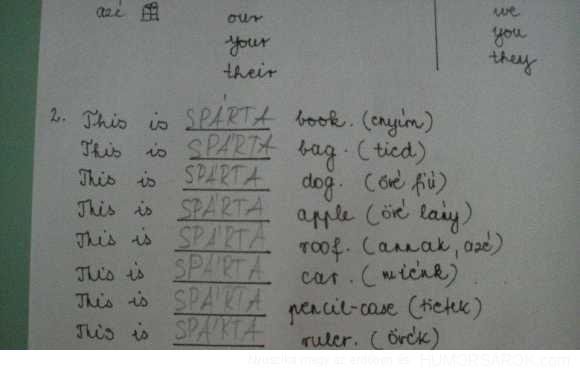 azé our we
your you
their they
2. This is SPÁRTA book. (enyém)
This is SPÁRTA bag. (tied)
This is SPÁRTA dog. (övé fiú)
This is SPÁRTA apple (övé lány)
This is SPÁRTA roof. (annak, azé)
This is SPÁRTA car. (miénk)
This is SPÁRTA pencil-case (tietek)
This is SPÁRTA ruler. (övék)
megy az erdőben és HUMORSAROK.com